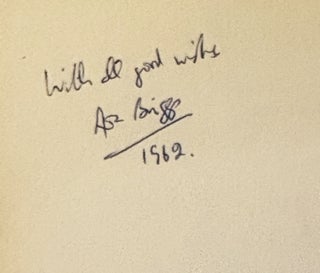 With all good wishes
Asa Briggs
1962.